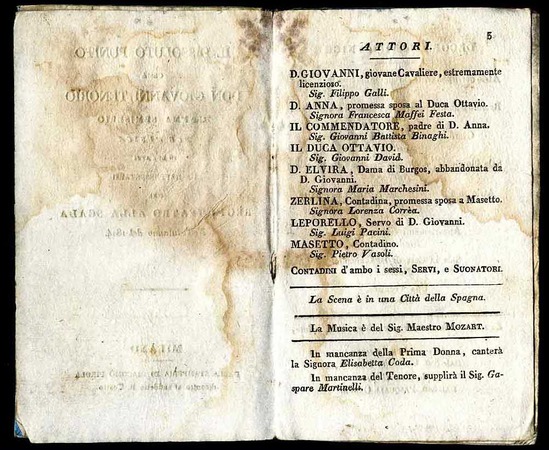 5
ATTORI.
D. GIOVANNI, giovane Cavaliere, estremamente
licenzioso.
Sig. Filippo Galli.
D. ANNA, promessa sposa al Duca Ottavio.
Signora Francesca Maffei Festa.
IL COMMENDATORE, padre di D. Anna.
Sig. Giovanni Battista Binaghi.
IL DUCA OTTAVIO.
Sig. Giovanni David.
D. ELVIRA, Dama di Burgos, abbandonata da
D. Giovanni.
Signora Maria Marchesini.
ZERLINA, Contadina, promessa sposa a Masetto.
Signora Lorenza Corrèa.
LEPORELLO, Servo di D. Giovanni.
Sig. Luigi Pacini.
MASETTO, Contadino.
Sig. Pietro Vasoli.
CONTADINI d'ambo i sessi, SERVI, e SUONATORI.
La Scena è in una Città della Spagna.
La Musica è del Sig. Maestro MOZART.
In mancanza della Prima Donna, canterà
la Signora Elisabetta Coda.
In mancanza del Tenore, supplirà il Sig. Ga-
spare Martinelli.